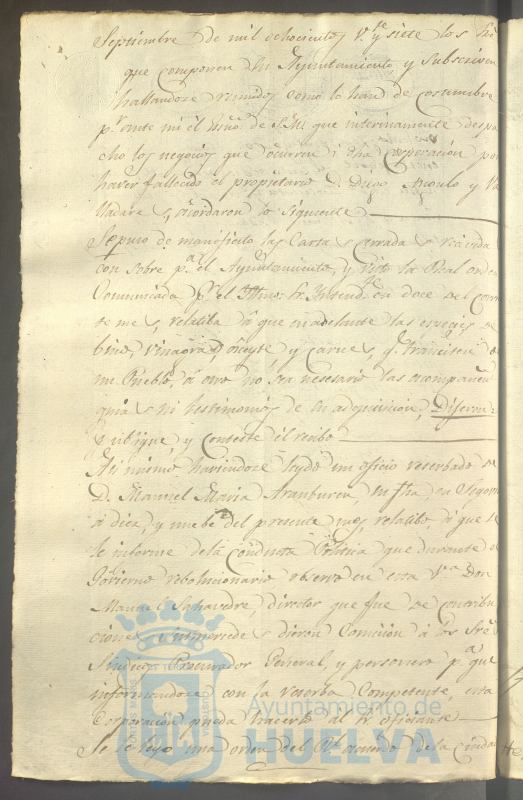 Septiembre de mil ochocientos v.te y siete los Sres
que componen dho Ayuntamiento y subscriven
hallandose reunidos como lo han de costumbre
p.r ante mi el Essno de S.M. que interinamente despa
cho los negocios que ocurren á dha Corporación por
haver fallecido el propietario D. Diego Angulo y Va
lladares, acordaron lo siguiente
Se puso de manifiesto las Cartas cerradas recividas
con sobre p.a el Ayuntamiento, y vista la Real orden
Comunicada p.r el Sr. Intend.te en doce del corrien
te mes, relatiba á que en adelante las especies de
bino, vinagre, aceyte, y carnes, q.e transiten de
un Pueblo, á otro no sea necesario las acompañen
guias ni testimonios de su adquisicion, Dijeron:
Publique, y conteste el recibo
Asi mismo haviendose leydo un oficio reserbado de
D. Manuel Maria Aramburu, su fha, en Segovia
á diez, y nuebe del presente mes, relatibo, á que se
le informe de la Conducta Politica que durante el
Gobierno rebolucionario observó en esta V.a Don
Manuel Saavedra, director que fue de contribu
ciones, Sus mercedes dieron Comisión á los Sres
Sindico Procurador General, y personero p.a que
informandose con la reserba Competente, esta
Corporación pueda hacerlo al Sr. oficiante
Se le leyo una orden del R.l acuerdo de la ciudad
Ayuntamiento de
HUELVA